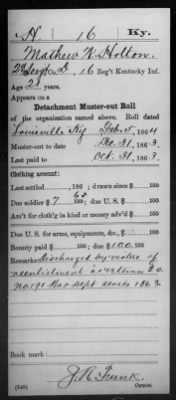 H 16 Ky.
Mathew W. Holton
2d Serg't, Co. D, 16 Reg't Kentucky Inf.
Age 21 years.
Appears on a
Detachment Muster-out Roll
of the organization named above. Roll dated
Louisville Ky Feb. 5, 1864
Muster-out to date Dec. 31, 1863.
Last paid to Oct. 31, 1863.
Clothing account:
Last settled , 186 ; drawn since $ 100
Due soldier $ 7 65/100; due U. S. $ 100
Am't for cloth'g in kind or money adv'd $ 100
Due U. S. for arms, equipments, &c., $ 100
Bounty paid $ 100; due $ 100. 100
Remarks: discharged by virtue of
reenlistment as Veteran G.O.
No. 191 War Dept series 1863.
Book mark:
J. R. Trunk.
(340) Copyist.